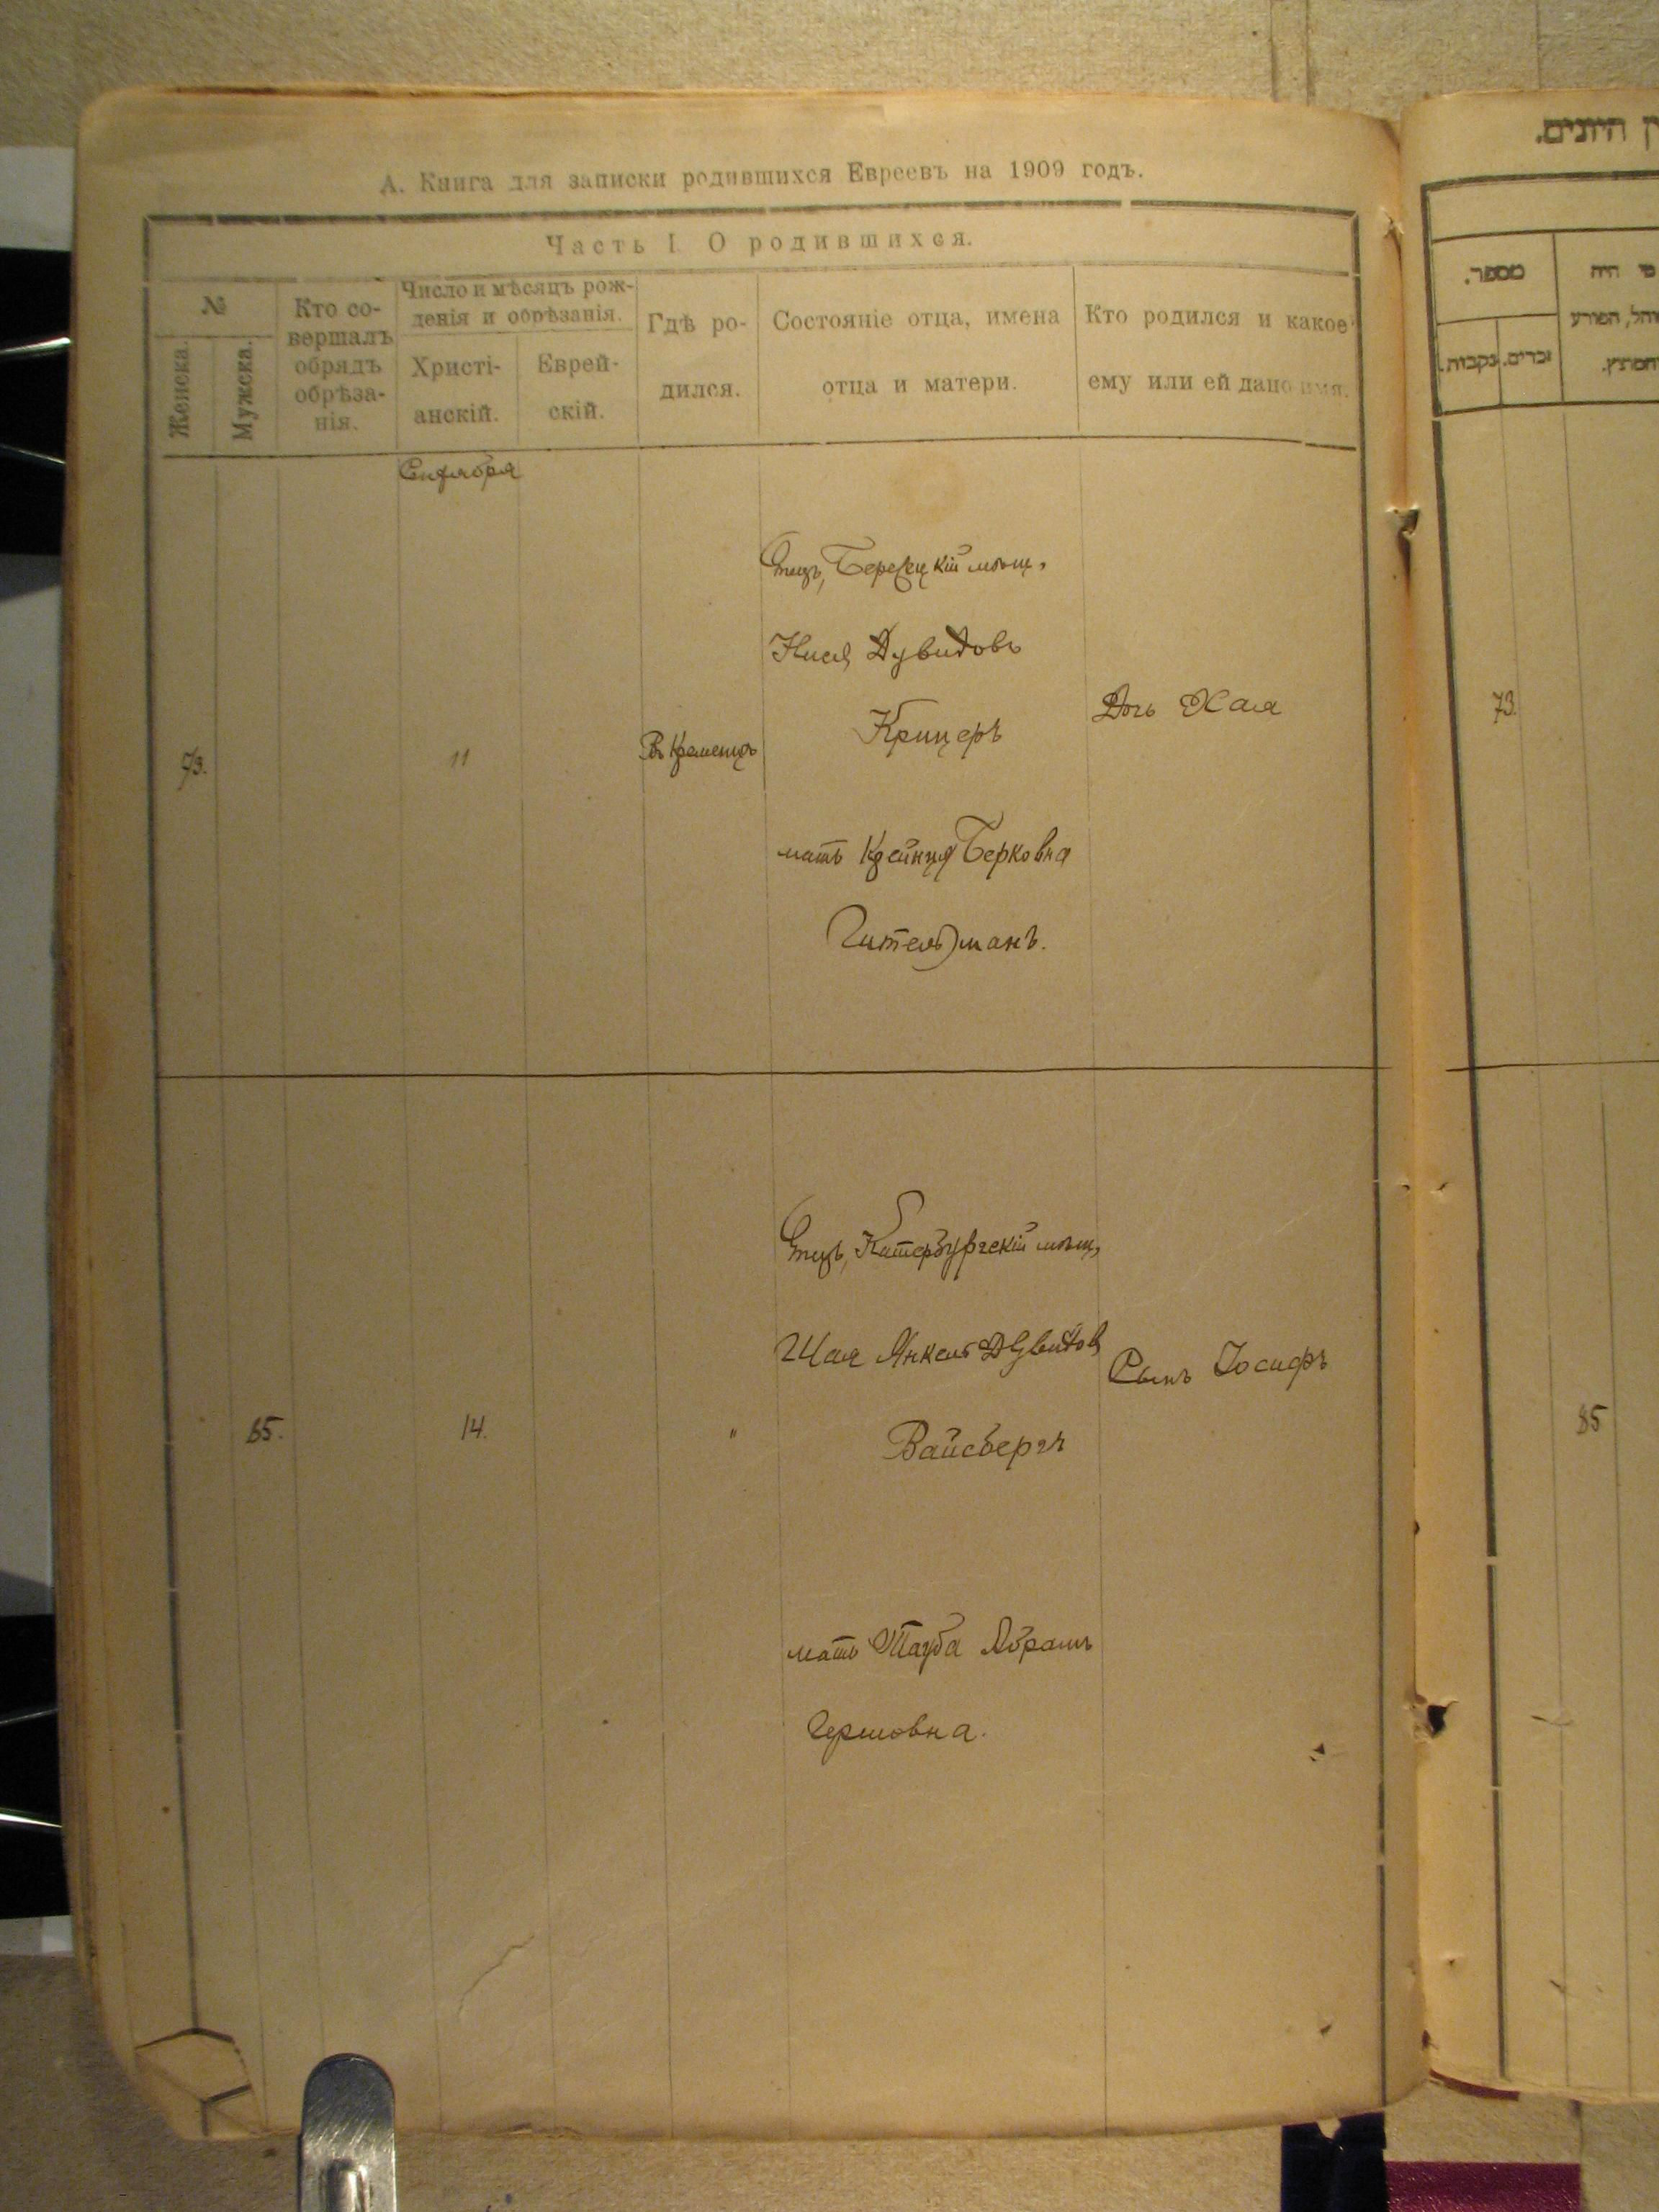 А. Книга для записки родившихся Евреевъ на 1909 годъ.
Часть I. О родившихся.
№
Женска.
Мужска.
Кто со-
вершалъ
обрядъ
обрѣза-
нія.
Число и мѣсяцъ рож-
денія и обрѣзанія.
Христі-
анскій.
Еврей-
скій.
Гдѣ ро-
дился.
Состояніе отца, имена
отца и матери.
Кто родился и какое
ему или ей дано имя.
Сентября
73.
11
Въ Кременцѣ
Отецъ, Березецкій мѣщ.
Дувидовъ
Крицеръ
мать Крейнця Берковна
Гительманъ.
Дочь Хая
85.
14.
"
Отецъ, Катербургскій мѣщ,
Шая Янкель Дувидов
Вайсбергъ
мать Тауба Абрамъ
Гершовна.
Сынъ Іосифъ
ן היונים.
מספר.
זכרים.
נקבות.
מי היה
והמתץ.
73.
85